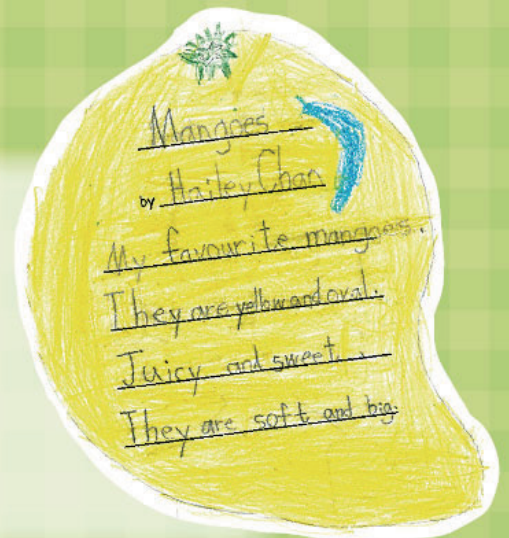 Mangoes
by Hailey Chan
My favourite mangoes.
They are yellow and oval.
Juicy and sweet.
They are soft and big.